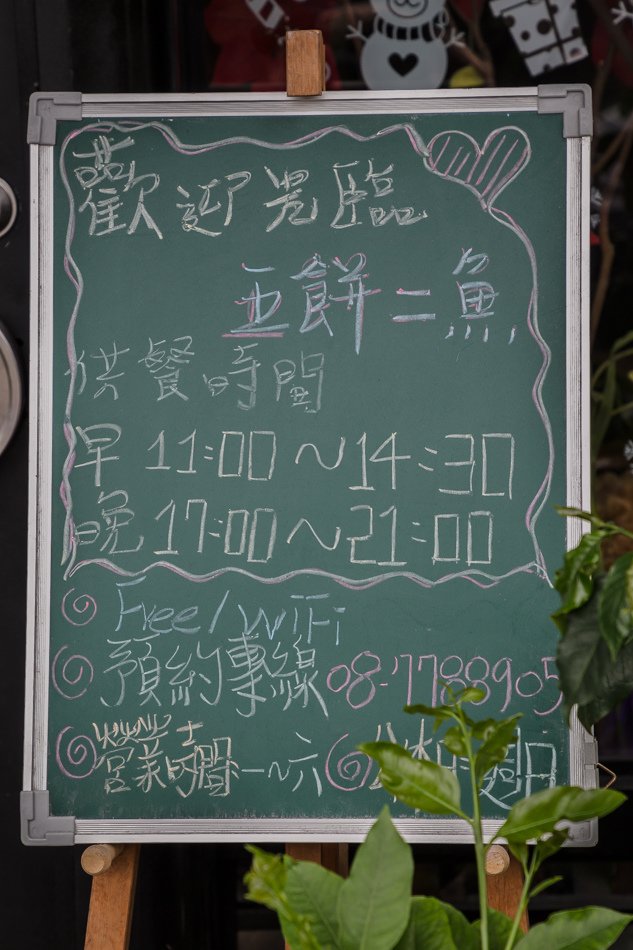 歡迎光臨
五餅二魚
供餐時間
早 11:00～14:30
晚 17:00～21:00
Free/WiFi
預約專線 08-7788905
營業時間一~六 公休週日